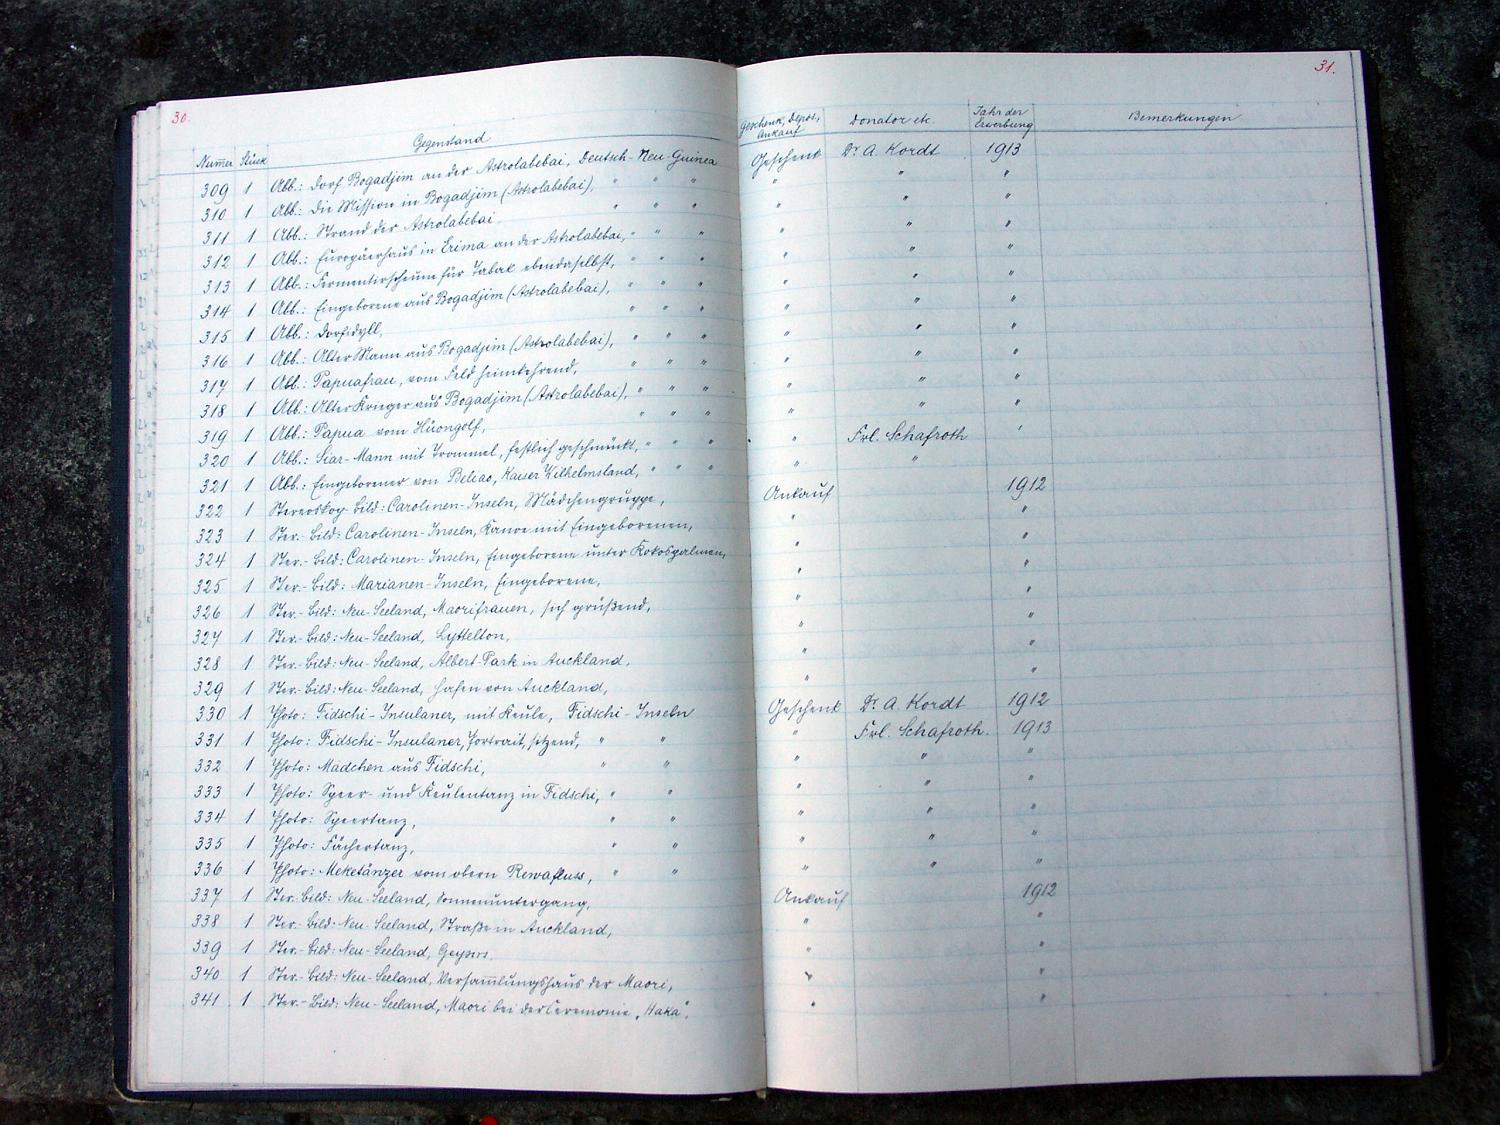 30.
Numer Stück Gegenstand
309 1 Abb.: Dorf Bogadjim an der Astrolabebai, Deutsch-Neu-Guinea
310 1 Abb.: Die Mission in Bogadjim (Astrolabebai), " " "
311 1 Abb.: Strand der Astrolabebai " " "
312 1 Abb.: Europäerhaus in Erima an der Astrolabebai, " " "
313 1 Abb.: Fermentierscheune für Tabak ebendaselbst, " " "
314 1 Abb.: Eingeborene aus Bogadjim (Astrolabebai), " " "
315 1 Abb.: Dorfidyll, " " "
316 1 Abb.: Alter Mann aus Bogadjim (Astrolabebai), " " "
317 1 Abb.: Papuafrau, vom Feld heimkehrend, " " "
318 1 Abb.: Alter Krieger aus Bogadjim (Astrolabebai), " " "
319 1 Abb.: Papua vom Hüongolf, " " "
320 1 Abb.: Siar-Mann mit Trommel, festlich geschmückt, " " "
321 1 Abb.: Eingeborener von Beliao, Kaiser Wilhelmsland, " " "
322 1 Stereoskop-Bild: Carolinen-Inseln, Mädchengruppe,
323 1 Ster.-Bild: Carolinen-Inseln, Kanoe mit Eingeborenen,
324 1 Ster.-Bild: Carolinen-Inseln, Eingeborene unter Kokospalmen,
325 1 Ster.-Bild: Marianen-Inseln, Eingeborene,
326 1 Ster.-Bild: Neu-Seeland, Maorifrauen, sich grüßend,
327 1 Ster.-Bild: Neu-Seeland, Lyttelton,
328 1 Ster.-Bild: Neu-Seeland, Albert-Park in Auckland,
329 1 Ster.-Bild: Neu-Seeland, Hafen von Auckland,
330 1 Photo: Fidschi-Insulaner, mit Keule, Fidschi-Inseln
331 1 Photo: Fidschi-Insulaner, Portrait, sitzend, " "
332 1 Photo: Mädchen aus Fidschi, " "
333 1 Photo: Speer- und Keulentanz in Fidschi, " "
334 1 Photo: Speertanz, " "
335 1 Photo: Fächertanz, " "
336 1 Photo: Meketänzer vom obern Rewafluss, " "
337 1 Ster.-Bild: Neu-Seeland, Sonnenuntergang,
338 1 Ster.-Bild: Neu-Seeland, Straße in Auckland,
339 1 Ster.-Bild: Neu-Seeland, Geysirs.
340 1 Ster.-Bild: Neu-Seeland, Versam̅lungshaus der Maori,
341 1 Ster.-Bild: Neu-Seeland, Maori bei der Ceremonie „Haka".
31.
Geschenk, Depos., Ankauf Donator etc. Jahr der Erwerbung Bemerkungen
Geschenk Dr. A. Kordt 1913
" " "
" " "
" " "
" " "
" " "
" " "
" " "
" " "
" " "
" " "
" Frl. Schafroth "
" "
Ankauf 1912
" "
" "
" "
" "
" "
" "
" "
Geschenk Dr. A. Kordt 1912
" Frl. Schafroth. 1913
" " "
" " "
" " "
" " "
" " "
Ankauf 1912
" "
" "
" "
" "